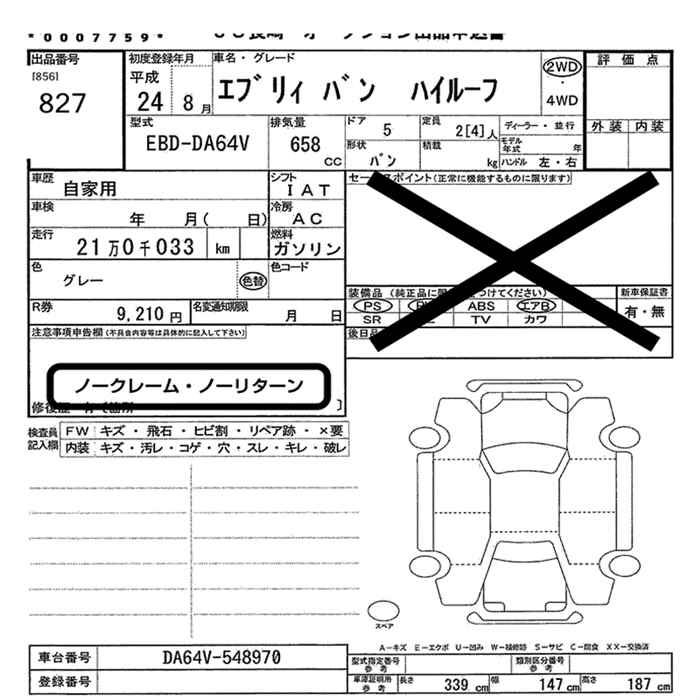 *0007759*
出品番号
[856]
827
初度登録年月
平成
24 8 月
車名・グレード
エブリィ バン ハイルーフ
2WD
・
4WD
評価点
外装 内装
型式
EBD-DA64V
排気量
658
CC
ドア
5
定員
2[4]人
ディーラー・並行
形状
バン
積載
kg
モデル年式
年
ハンドル 左・右
車歴
自家用
シフト
IAT
車検
年 月( 日)
冷房
AC
走行
21万0千033 km
燃料
ガソリン
色
グレー
色替
色コード
R券
9,210円
名変通知期限
月 日
注意事項申告欄(不具合内容等は具体的に記入して下さい)
ノークレーム・ノーリターン
セールスポイント(正常に機能するものに限ります)
装備品
新車保証書
PS ABS エアB
有・無
SR TV カワ
後日品
検査員
記入欄
FW キズ・飛石・ヒビ割・リペア跡・×要
内装 キズ・汚レ・コゲ・穴・スレ・キレ・破レ
スペア
A−キズ E−エクボ U−凹み W−補修跡 S−サビ C−腐食 XX−交換済
車台番号
DA64V-548970
登録番号
型式指定番号
参考
類別区分番号
参考
車庫証明用
参考
長さ 339 cm 幅 147 cm 高さ 187 cm